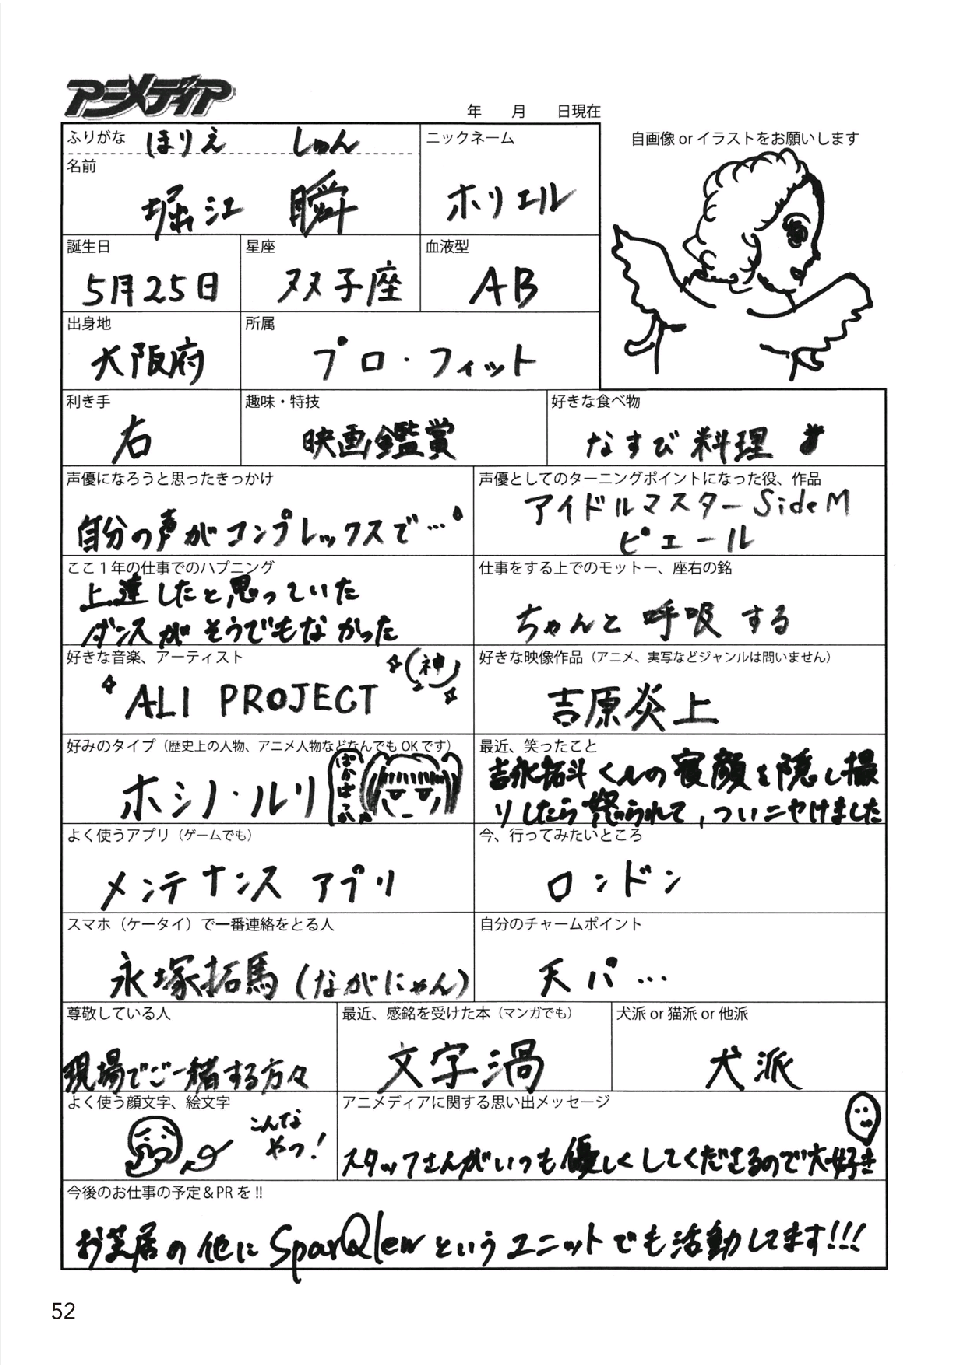 アニメディア
年 月 日現在
ふりがな ほりえ しゅん
名前
堀江 瞬
ニックネーム
ホリエル
自画像 or イラストをお願いします
誕生日
5月25日
星座
双子座
血液型
AB
出身地
大阪府
所属
プロ・フィット
利き手
右
趣味・特技
映画鑑賞
好きな食べ物
なすび料理
声優になろうと思ったきっかけ
自分の声がコンプレックスで…
声優としてのターニングポイントになった役、作品
アイドルマスター SideM
ピエール
ここ1年の仕事でのハプニング
上達したと思っていた
ダンスがそうでもなかった
仕事をする上でのモットー、座右の銘
ちゃんと呼吸する
好きな音楽、アーティスト
ALI PROJECT (神)
好きな映像作品(アニメ、実写などジャンルは問いません)
吉原炎上
好みのタイプ(歴史上の人物、アニメ人物などなんでも OK です)
ホシノ・ルリ
ばかばっか
最近、笑ったこと
吉永拓斗くんの寝顔を隠し撮
りしたら怒られて、ついニヤけました
よく使うアプリ(ゲームでも)
メンテナンスアプリ
今、行ってみたいところ
ロンドン
スマホ(ケータイ)で一番連絡をとる人
永塚拓馬(ながにゃん)
自分のチャームポイント
天パ…
尊敬している人
現場でご一緒する方々
最近、感銘を受けた本(マンガでも)
文字渦
犬派 or 猫派 or 他派
犬派
よく使う顔文字、絵文字
こんな
やつ!
アニメディアに関する思い出メッセージ
スタッフさんがいつも優しくしてくださるので大好き
今後のお仕事の予定&PRを!!
お芝居の他にSparQlewというユニットでも活動してます!!!
52